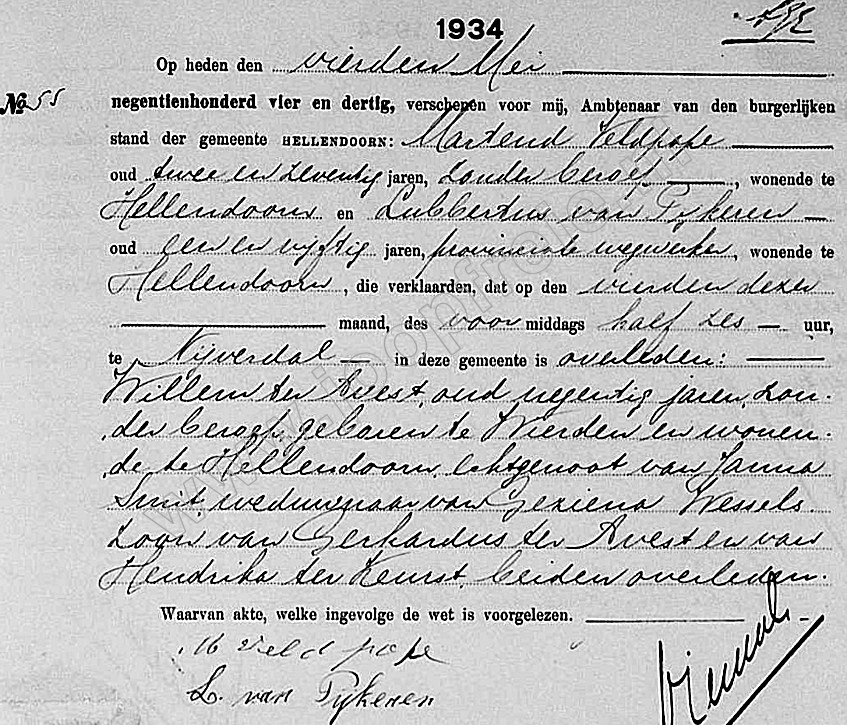 1934
Op heden den vierden Mei
No 55
negentienhonderd vier en dertig, verschenen voor mij, Ambtenaar van den burgerlijken
stand der gemeente HELLENDOORN: Martend Veldpope
oud twee en zeventig jaren, zonder beroep, wonende te
Hellendoorn en Lubbertus van Pijkeren
oud een en vijftig jaren, provinciale wegwerker, wonende te
Hellendoorn, die verklaarden, dat op den vierden dezer
maand, des voormiddags half zes uur,
te Nijverdal in deze gemeente is overleden:
Willem ter Avest, oud negentig jaren, zon-
der beroep, geboren te Wierden en wonen-
de te Hellendoorn, echtgenoot van Janna
Smit weduwnaar van Geziena Wessels
zoon van Gerhardus ter Avest en van
Hendrika ter Keurst, beiden overleden.
Waarvan akte, welke ingevolge de wet is voorgelezen.
M Veldpope
L. van Pijkeren